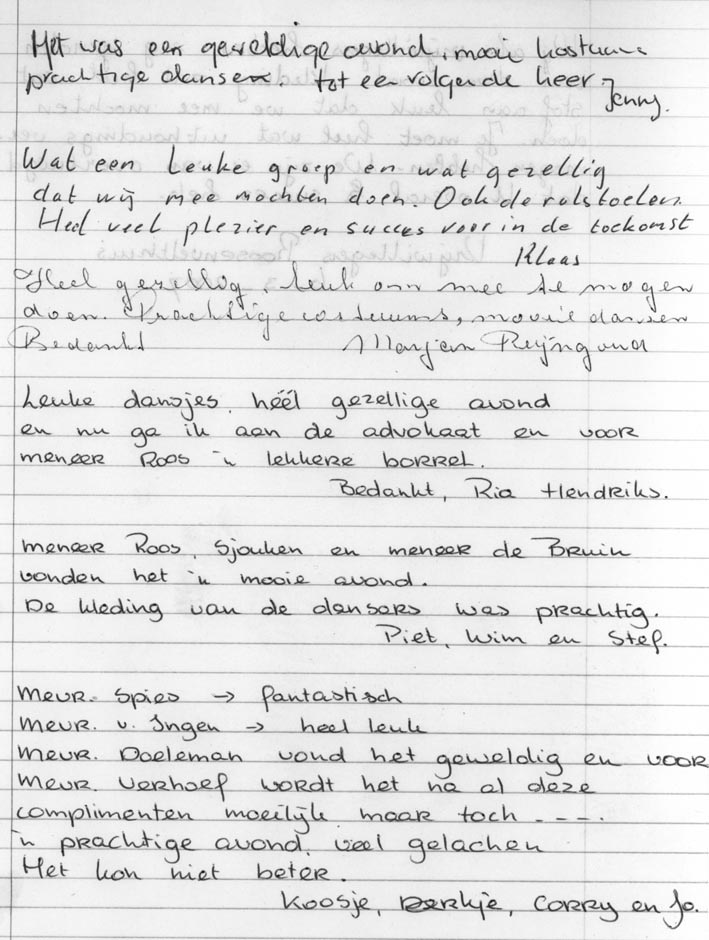 Het was een geweldige avond, mooie kostuums
prachtige dansen. tot een volgende keer,
Jenny.
Wat een leuke groep en wat gezellig
dat wij mee mochten doen. Ook de rolstoelen.
Heel veel plezier en succes voor in de toekomst
Klaas
Heel gezellig, leuk om mee te mogen
doen. Prachtige costuums, mooie dansen
Bedankt Marjan
Leuke dansjes, héél gezellige avond
en nu ga ik aan de advokaat en voor
meneer Roos 'n lekkere borrel.
Bedankt, Ria Hendriks.
meneer Roos, Sjouken en meneer de Bruin
vonden het 'n mooie avond.
De kleding van de dansers was prachtig.
Piet, Wim en Stef.
mevr. Spies → fantastisch
mevr. v. Ingen → heel leuk
mevr. Doeleman vond het geweldig en voor
mevr. Verhoef wordt het na al deze
complimenten moeilijk maar toch ----.
'n prachtige avond, veel gelachen
Het kon niet beter.
Koosje, Derkje, Corry en Jo.